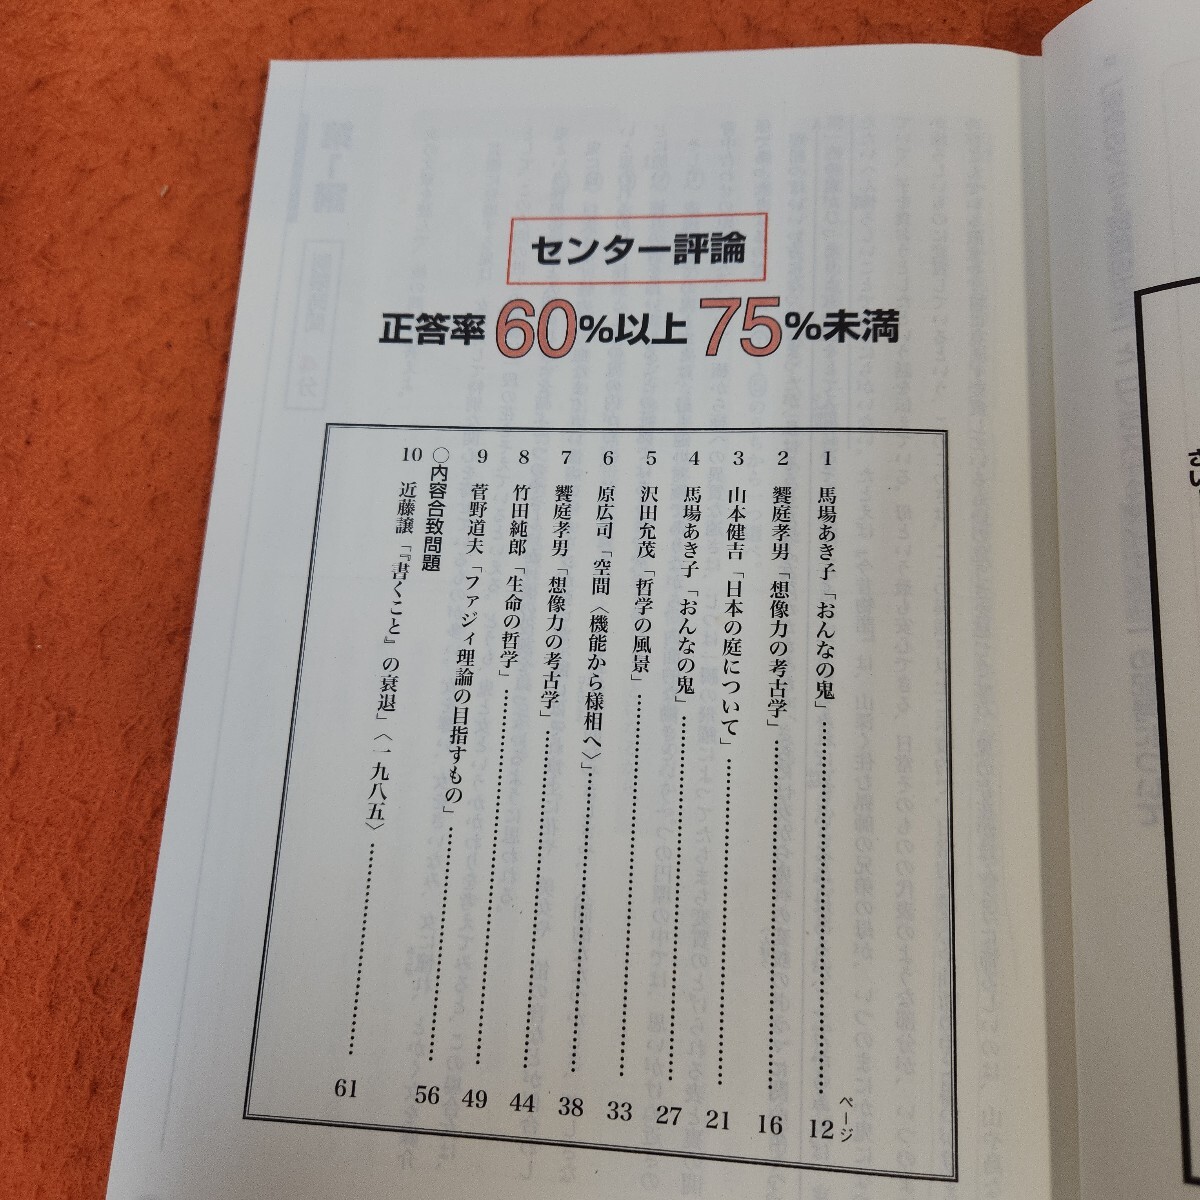 センター評論
正答率60%以上75%未満
ページ
1 馬場あき子「おんなの鬼」……12
2 饗庭孝男「想像力の考古学」……16
3 山本健吉「日本の庭について」……21
4 馬場あき子「おんなの鬼」……27
5 沢田允茂「哲学の風景」……33
6 原広司「空間〈機能から様相へ〉」……38
7 饗庭孝男「想像力の考古学」……44
8 竹田純郎「生命の哲学」……49
9 菅野道夫「ファジィ理論の目指すもの」……56
○内容合致問題
10 近藤譲「『書くこと』の衰退」〈一九八五〉……61